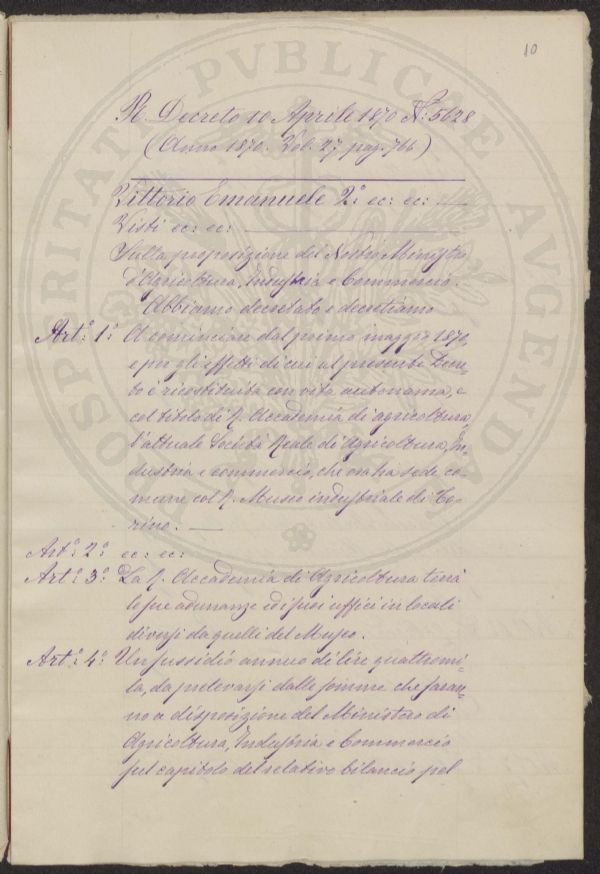 10
R. Decreto 10 Aprile 1870 N.° 5628
(Anno 1870. Vol. 27 pag. 766)
Vittorio Emanuele 2.° ec: ec:
Visti ec: ec:
Sulla proposizione del Nostro Ministro
d'Agricoltura, Industria e Commercio.
Abbiamo decretato e decretiamo
Art.° 1.° A cominciare dal primo maggio 1870,
e per gli effetti di cui al presente Decre-
to è ricostituita con vita autonama, e
col titolo di R. Accademia di agricoltura,
l'attuale Società Reale di Agricoltura, In-
dustria e commercio, che ora ha sede co-
mune col R. Museo industriale di To-
rino.
Art.° 2.° ec: ec:
Art.° 3.° La R. Accademia di Agricoltura terrà
le sue adunanze ed i suoi uffici in locali
diversi da quelli del Museo.
Art.° 4.° Un sussidio annuo di lire quattromi-
la, da prelevarsi dalle somme che saran-
no a disposizione del Ministero di
Agricoltura, Industria e Commercio
sul capitolo del relativo bilancio pel
PVBLICAE PROSPERITATI AVGENDAE